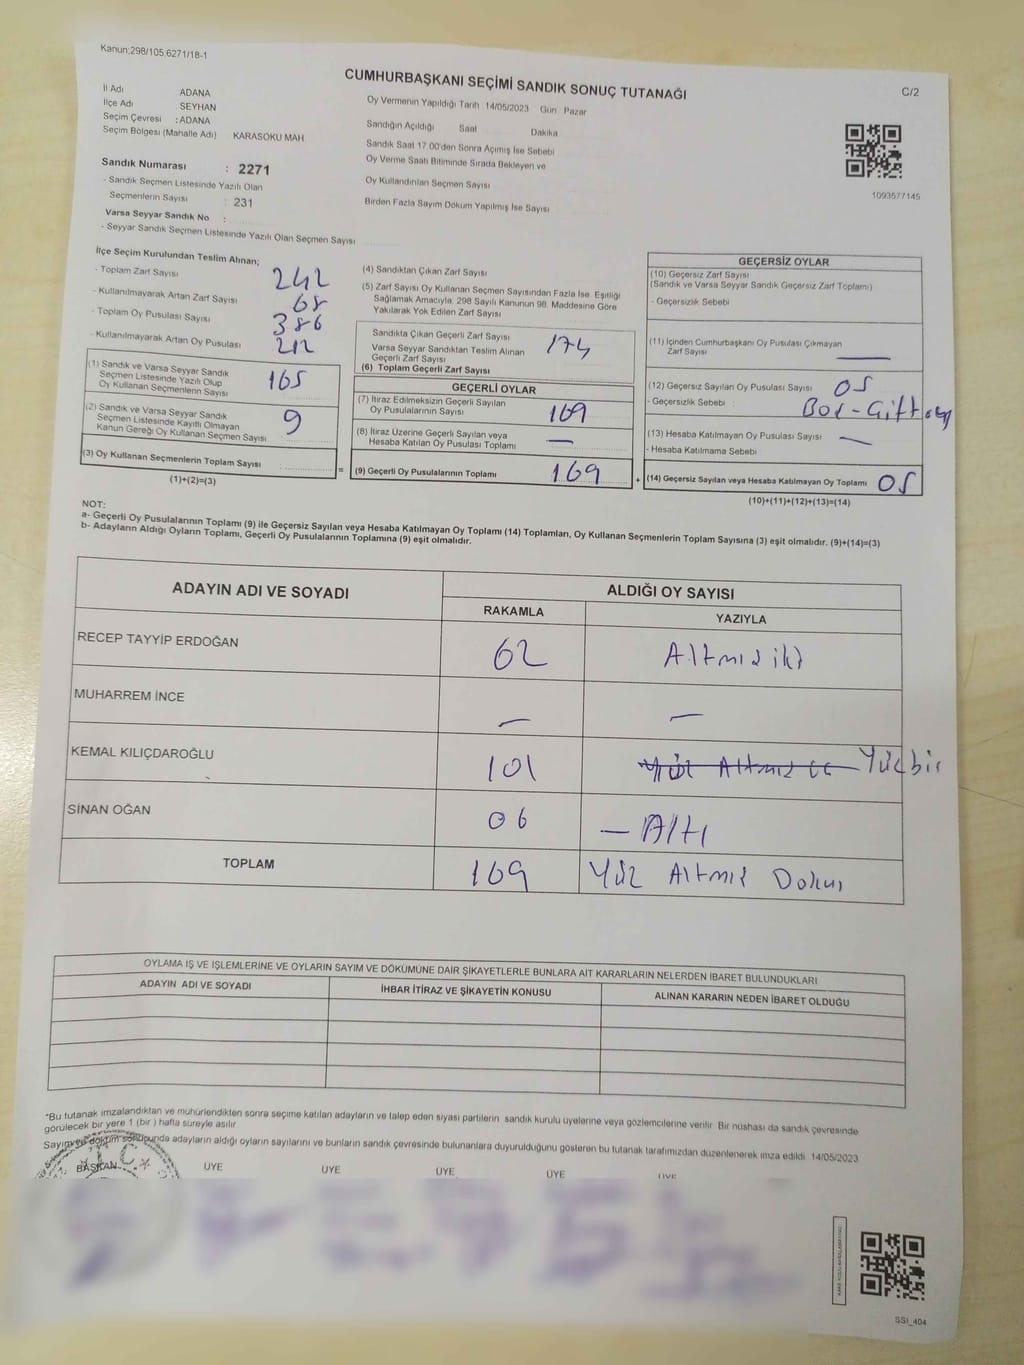 Kanun;298/105,6271/18-1
CUMHURBAŞKANI SEÇİMİ SANDIK SONUÇ TUTANAĞI
C/2
İl Adı ADANA
İlçe Adı SEYHAN
Seçim Çevresi : ADANA
Seçim Bölgesi (Mahalle Adı) KARASOKU MAH.
Sandık Numarası : 2271
- Sandık Seçmen Listesinde Yazılı Olan
Seçmenlerin Sayısı : 231
Varsa Seyyar Sandık No :
- Seyyar Sandık Seçmen Listesinde Yazılı Olan Seçmen Sayısı
Oy Vermenin Yapıldığı Tarih 14/05/2023 Gün Pazar
Sandığın Açıldığı Saat Dakika
Sandık Saat 17.00'den Sonra Açımış İse Sebebi
Oy Verme Saati Bitiminde Sırada Bekleyen ve
Oy Kullandırılan Seçmen Sayısı
Birden Fazla Sayım Döküm Yapılmış İse Sayısı
1093577145
İlçe Seçim Kurulundan Teslim Alınan;
- Toplam Zarf Sayısı 242
- Kullanılmayarak Artan Zarf Sayısı 68
- Toplam Oy Pusulası Sayısı 386
- Kullanılmayarak Artan Oy Pusulası 212
(1) Sandık ve Varsa Seyyar Sandık
Seçmen Listesinde Yazılı Olup
Oy Kullanan Seçmenlerin Sayısı 165
(2) Sandık ve Varsa Seyyar Sandık
Seçmen Listesinde Kayıtlı Olmayan
Kanun Gereği Oy Kullanan Seçmen Sayısı 9
(3) Oy Kullanan Seçmenlerin Toplam Sayısı
(1)+(2)=(3)
=
(4) Sandıktan Çıkan Zarf Sayısı
(5) Zarf Sayısı Oy Kullanan Seçmen Sayısından Fazla İse, Eşitliği
Sağlamak Amacıyla, 298 Sayılı Kanunun 98. Maddesine Göre
Yakılarak Yok Edilen Zarf Sayısı
Sandıkta Çıkan Geçerli Zarf Sayısı 174
Varsa Seyyar Sandıktan Teslim Alınan
Geçerli Zarf Sayısı
(6) Toplam Geçerli Zarf Sayısı
GEÇERLİ OYLAR
(7) İtiraz Edilmeksizin Geçerli Sayılan
Oy Pusulalarının Sayısı 169
(8) İtiraz Üzerine Geçerli Sayılan veya
Hesaba Katılan Oy Pusulası Toplamı —
(9) Geçerli Oy Pusulalarının Toplamı 169
+
GEÇERSİZ OYLAR
(10) Geçersiz Zarf Sayısı
(Sandık ve Varsa Seyyar Sandık Geçersiz Zarf Toplamı)
- Geçersizlik Sebebi
(11) İçinden Cumhurbaşkanı Oy Pusulası Çıkmayan
Zarf Sayısı —
(12) Geçersiz Sayılan Oy Pusulası Sayısı 05
- Geçersizlik Sebebi : Boş-Çift oy
(13) Hesaba Katılmayan Oy Pusulası Sayısı —
- Hesaba Katılmama Sebebi
(14) Geçersiz Sayılan veya Hesaba Katılmayan Oy Toplamı 05
(10)+(11)+(12)+(13)=(14)
NOT:
a- Geçerli Oy Pusulalarının Toplamı (9) ile Geçersiz Sayılan veya Hesaba Katılmayan Oy Toplamı (14) Toplamları, Oy Kullanan Seçmenlerin Toplam Sayısına (3) eşit olmalıdır. (9)+(14)=(3)
b- Adayların Aldığı Oyların Toplamı, Geçerli Oy Pusulalarının Toplamına (9) eşit olmalıdır.
ADAYIN ADI VE SOYADI ALDIĞI OY SAYISI
RAKAMLA YAZIYLA
RECEP TAYYİP ERDOĞAN 62 Altmış iki
MUHARREM İNCE — —
KEMAL KILIÇDAROĞLU 101 Yüz Altmış Yüzbir
SİNAN OĞAN 06 — Altı
TOPLAM 169 Yüz Altmış Dokuz
OYLAMA İŞ VE İŞLEMLERİNE VE OYLARIN SAYIM VE DÖKÜMÜNE DAİR ŞİKAYETLERLE BUNLARA AİT KARARLARIN NELERDEN İBARET BULUNDUKLARI
ADAYIN ADI VE SOYADI İHBAR İTİRAZ VE ŞİKAYETİN KONUSU ALINAN KARARIN NEDEN İBARET OLDUĞU
*Bu tutanak imzalandıktan ve mühürlendikten sonra seçime katılan adayların ve talep eden siyasi partilerin sandık kurulu üyelerine veya gözlemcilerine verilir. Bir nüshası da sandık çevresinde
görülecek bir yere 1 (bir) hafta süreyle asılır
Sayım ve döküm sonucunda adayların aldığı oyların sayılarını ve bunların sandık çevresinde bulunanlara duyurulduğunu gösteren bu tutanak tarafımızdan düzenlenerek imza edildi. 14/05/2023
BAŞKAN ÜYE ÜYE ÜYE ÜYE ÜYE
T.C.
SSI_404